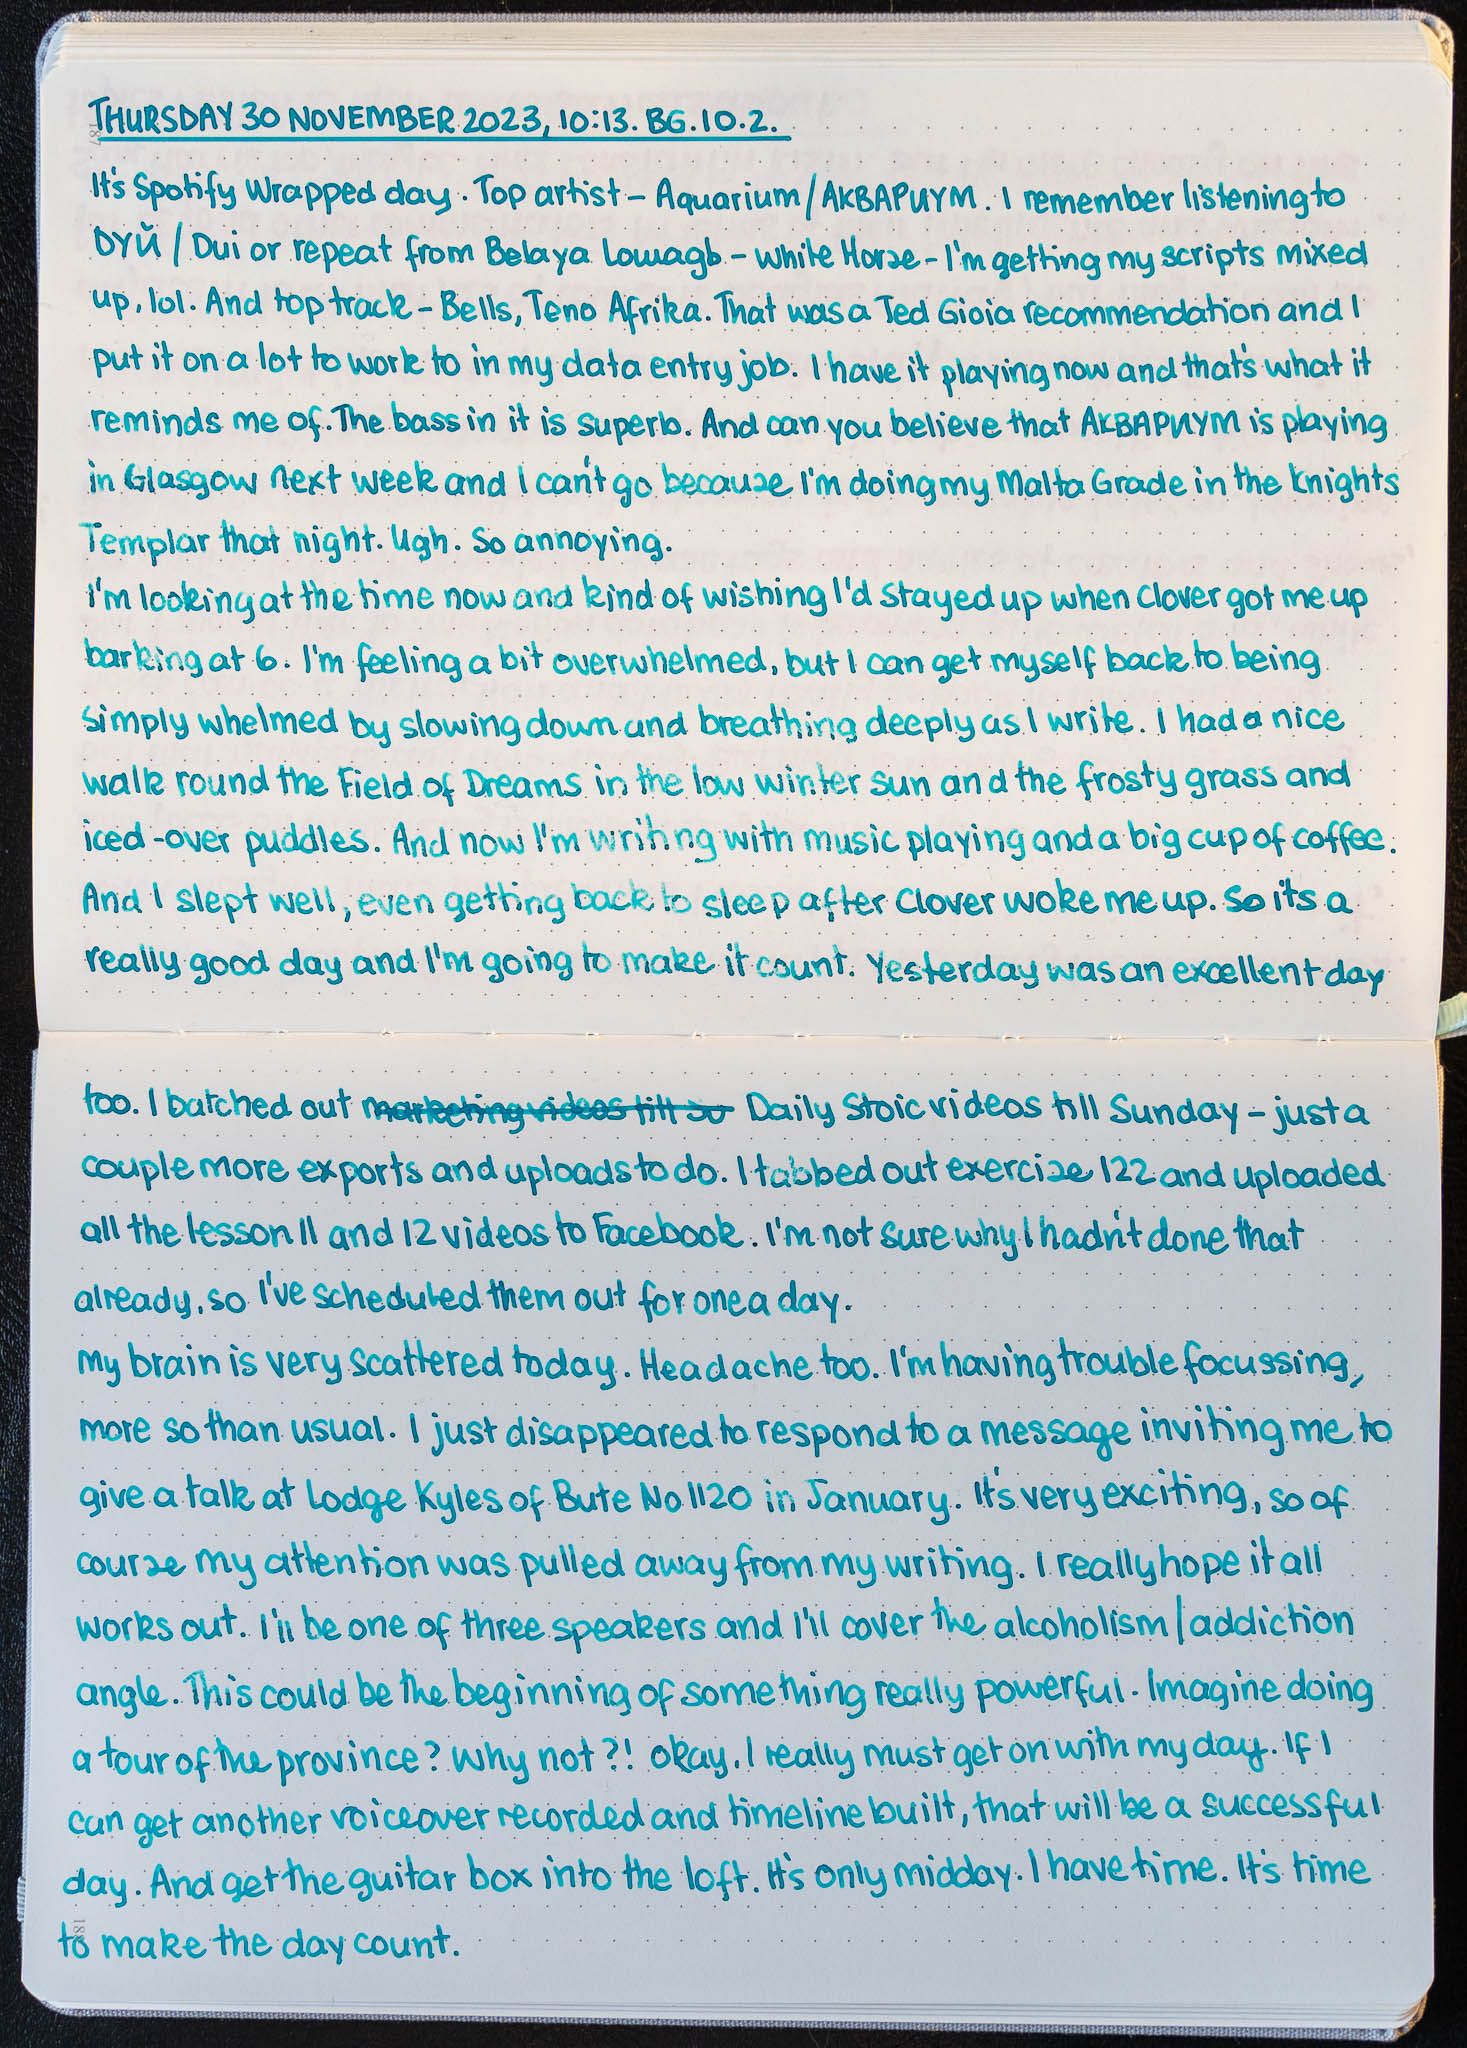 THURSDAY 30 NOVEMBER 2023, 10:13. BG.10.2.
It's Spotify Wrapped day. Top artist – Aquarium/АКВАРИУМ. I remember listening to
DYЙ / Dui or repeat from Belaya Lowagb – White Horse – I'm getting my scripts mixed
up, lol. And top track – Bells, Teno Afrika. That was a Ted Gioia recommendation and I
put it on a lot to work to in my data entry job. I have it playing now and that's what it
reminds me of. The bass in it is superb. And can you believe that АКВАРИУМ is playing
in Glasgow next week and I can't go because I'm doing my Malta Grade in the Knights
Templar that night. Ugh. So annoying.
I'm looking at the time now and kind of wishing I'd stayed up when Clover got me up
barking at 6. I'm feeling a bit overwhelmed, but I can get myself back to being
simply whelmed by slowing down and breathing deeply as I write. I had a nice
walk round the Field of Dreams in the low winter sun and the frosty grass and
iced-over puddles. And now I'm writing with music playing and a big cup of coffee.
And I slept well, even getting back to sleep after Clover woke me up. So its a
really good day and I'm going to make it count. Yesterday was an excellent day
too. I batched out marketing videos till su Daily Stoic videos till Sunday – just a
couple more exports and uploads to do. I tabbed out exercise 122 and uploaded
all the lesson 11 and 12 videos to Facebook. I'm not sure why I hadn't done that
already, so I've scheduled them out for one a day.
My brain is very scattered today. Headache too. I'm having trouble focussing,
more so than usual. I just disappeared to respond to a message inviting me to
give a talk at Lodge Kyles of Bute No 1120 in January. It's very exciting, so of
course my attention was pulled away from my writing. I really hope it all
works out. I'll be one of three speakers and I'll cover the alcoholism/addiction
angle. This could be the beginning of something really powerful. Imagine doing
a tour of the province? Why not?! Okay, I really must get on with my day. If I
can get another voiceover recorded and timeline built, that will be a successful
day. And get the guitar box into the loft. It's only midday. I have time. It's time
to make the day count.
187
188